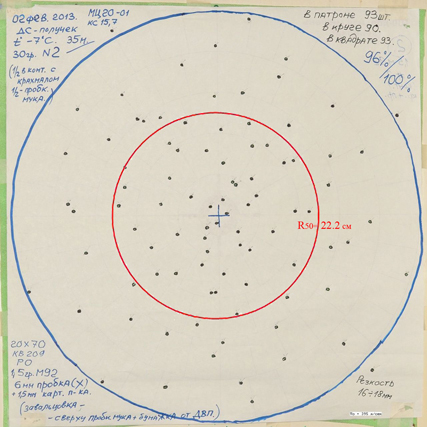 02 фев. 2013.
ДС-получек
t° -7°C. 35м.
30гр. N2
(1/2 в конт. с
крахмалом
1/2-пробк.
мука.)
МЦ20-01
КС 15,7
В патроне 93шт.
в круге 90.
в квадрате 93.
96%/
100%
R50= 22.2 см
20x70
КВ 209
РО
1,5гр. М92
6мм пробка(х)
+1,5мм карт. п-ка.
(завальцовка-
-сверху пробк. мука+бумажка от ДВП.)
Резкость
16÷18мм